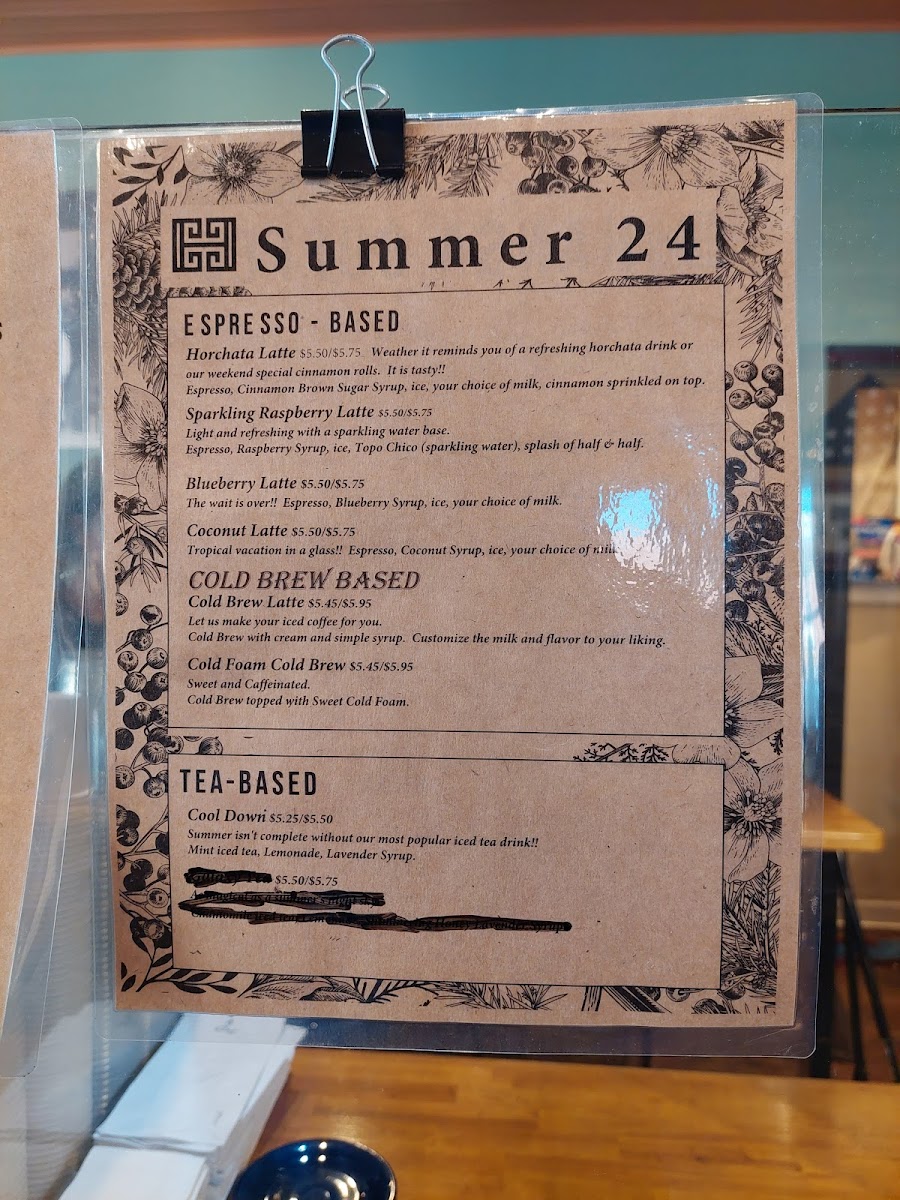 Summer 24
ESPRESSO - BASED
Horchata Latte $5.50/$5.75 Weather it reminds you of a refreshing horchata drink or
our weekend special cinnamon rolls. It is tasty!!
Espresso, Cinnamon Brown Sugar Syrup, ice, your choice of milk, cinnamon sprinkled on top.
Sparkling Raspberry Latte $5.50/$5.75
Light and refreshing with a sparkling water base.
Espresso, Raspberry Syrup, ice, Topo Chico (sparkling water), splash of half & half.
Blueberry Latte $5.50/$5.75
The wait is over!! Espresso, Blueberry Syrup, ice, your choice of milk.
Coconut Latte $5.50/$5.75
Tropical vacation in a glass!! Espresso, Coconut Syrup, ice, your choice of
COLD BREW BASED
Cold Brew Latte $5.45/$5.95
Let us make your iced coffee for you.
Cold Brew with cream and simple syrup. Customize the milk and flavor to your liking.
Cold Foam Cold Brew $5.45/$5.95
Sweet and Caffeinated.
Cold Brew topped with Sweet Cold Foam.
TEA-BASED
Cool Down $5.25/$5.50
Summer isn't complete without our most popular iced tea drink!!
Mint iced tea, Lemonade, Lavender Syrup.
$5.50/$5.75